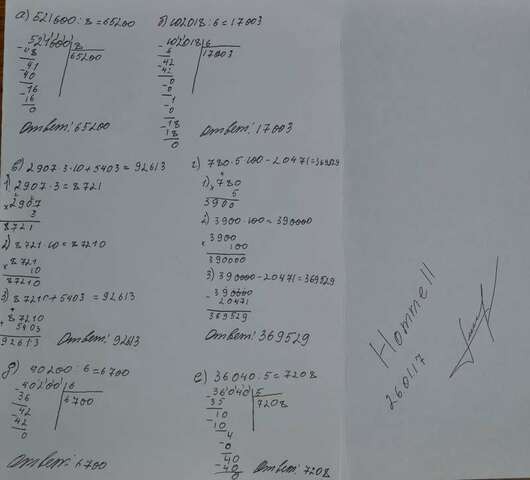 а) 521600 : 8 = 65200
521600 | 8
- 48 | 65200
- 41
40
- 16
16
0
Ответ: 65200
б) 102018 : 6 = 17003
- 102018 | 6
6 | 17003
- 42
42
- 0
0
- 1
0
- 18
18
0
Ответ: 17003
в) 2907 · 3 · 10 + 5403 = 92613
1) 2907 · 3 = 8721
× 2907
3
8721
2) 8721 · 10 = 87210
× 8721
10
87210
3) 87210 + 5403 = 92613
+ 87210
5403
92613
Ответ: 92613
г) 780 · 5 · 100 - 20471 = 369529
1) × 780
5
3900
2) 3900 · 100 = 390000
× 3900
100
390000
3) 390000 - 20471 = 369529
- 390000
20471
369529
Ответ: 369529
д) 40200 : 6 = 6700
- 40200 | 6
36 | 6700
- 42
42
0
Ответ: 6700
е) 36040 : 5 = 7208
- 36040 | 5
35 | 7208
- 10
10
4
- 0
40
- 40
0
Ответ: 7208
Hommell
260117